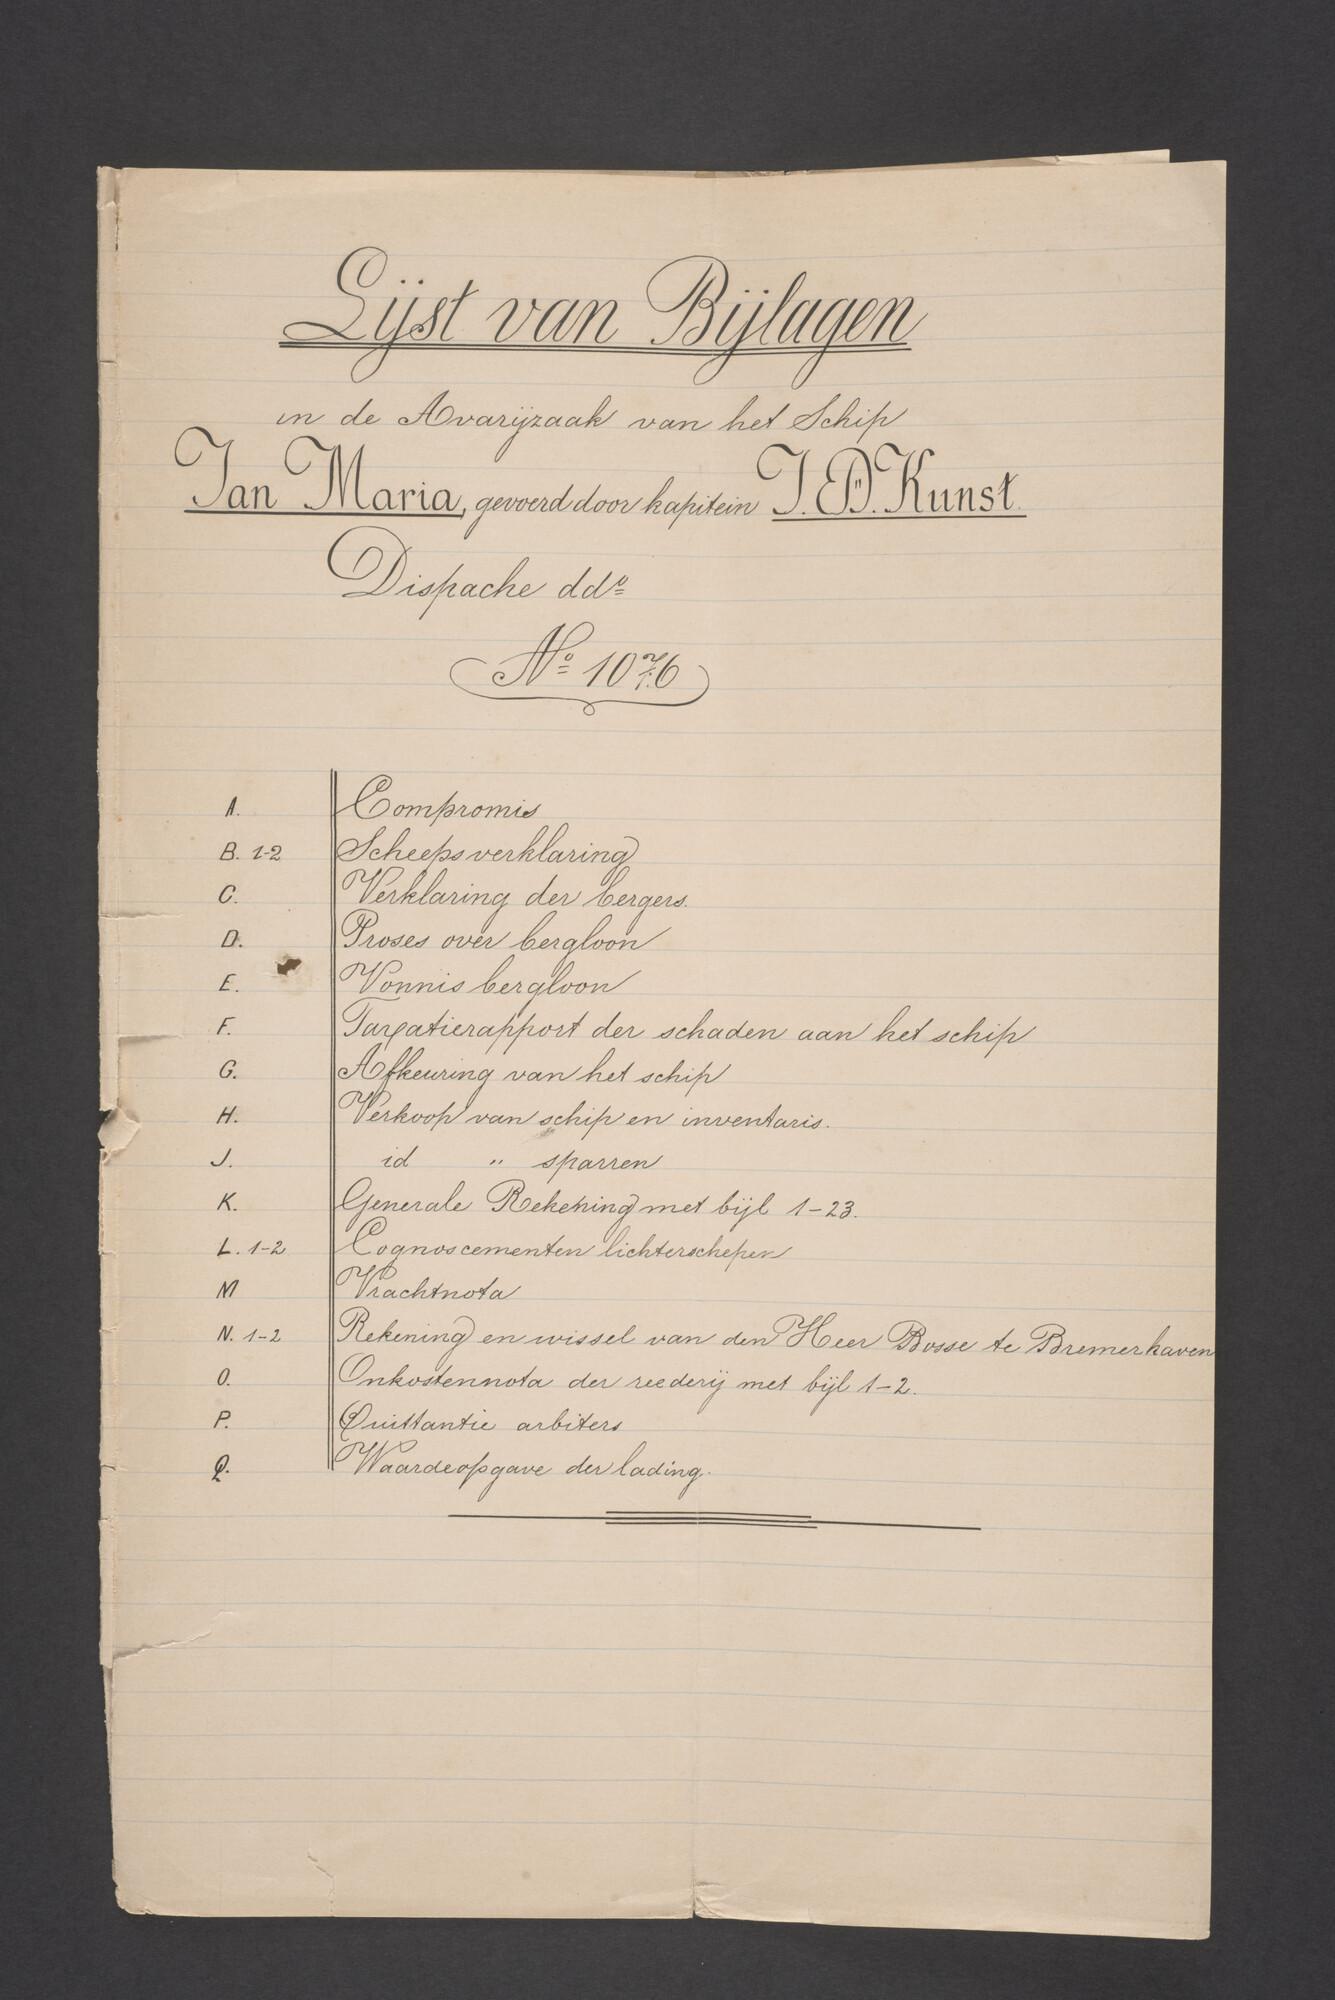 Lijst van Bijlagen
in de Avarijzaak van het Schip
Jan Maria, gevoerd door kapitein J. D. Kunst.
Dispache dd°
N° 1076
A. Compromis
B. 1-2 Scheepsverklaring
C. Verklaring der bergers.
D. Proses over bergloon
E. Vonnis bergloon
F. Taxatierapport der schaden aan het schip
G. Afkeuring van het schip
H. Verkoop van schip en inventaris.
J. id " sparren
K. Generale Rekening met bijl 1-23.
L. 1-2 Cognoscementen lichterschepen
M Vrachtnota
N. 1-2 Rekening en wissel van den Heer Bosse te Bremerhaven
O. Onkostennota der reederij met bijl 1-2.
P. Quittantie arbiters
Q. Waardeopgave der lading.